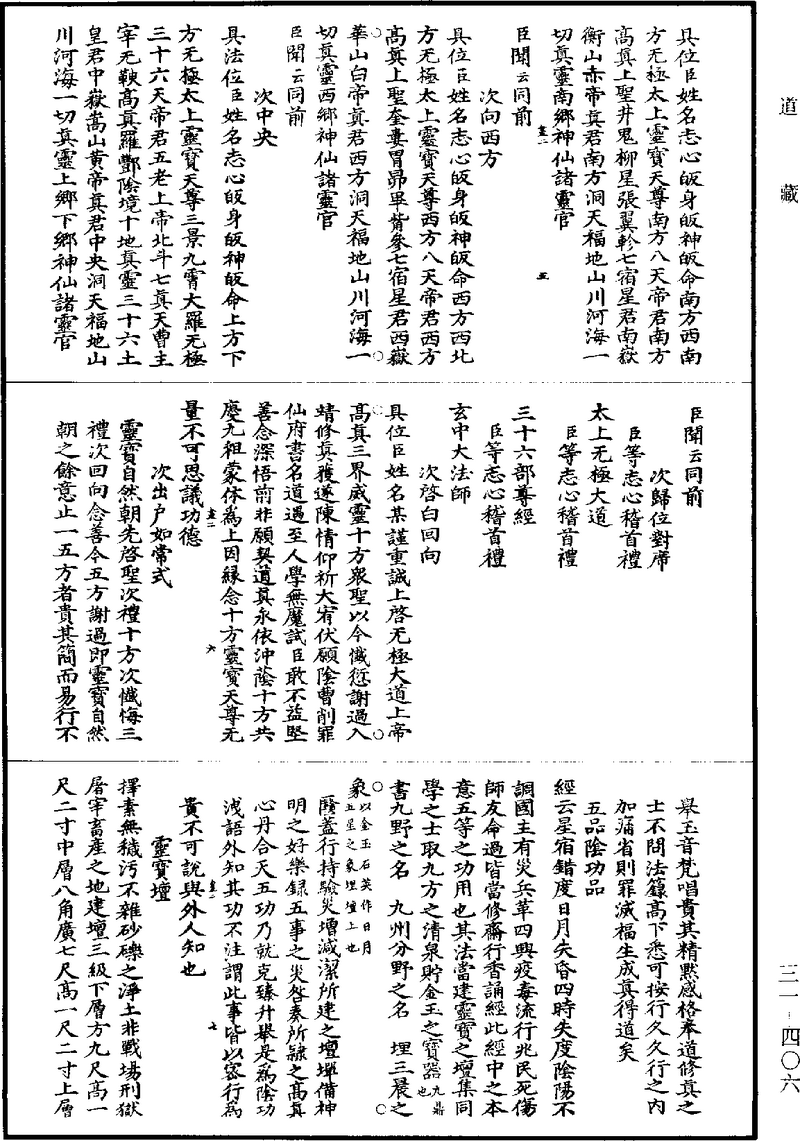 道藏
三一—四〇六
具位臣姓名志心皈身皈神皈命南方西南
方无極太上靈寶天尊南方八天帝君南方
高真上聖井鬼柳星張翼軫七宿星君南嶽
衡山赤帝真君南方洞天福地山川河海一
切真靈南鄉神仙諸靈官
臣聞云同前
次向西方
具位臣姓名志心皈身皈神皈命西方西北
方无極太上靈寶天尊西方八天帝君西方
高真上聖奎婁胃昴畢觜參七宿星君西嶽
華山白帝真君西方洞天福地山川河海一
切真靈西鄉神仙諸靈官
臣聞云同前
次中央
具法位臣姓名志心皈身皈神皈命上方下
方无極太上靈寶天尊三景九霄大羅无極
三十六天帝君五老上帝北斗七真天曹主
宰无鞅高真羅酆陰境十地真靈三十六土
皇君中嶽嵩山黄帝真君中央洞天福地山
川河海一切真靈上鄉下鄉神仙諸靈官
臣聞云同前
次歸位對席
臣等志心稽首禮
太上无極大道
臣等志心稽首禮
三十六部尊經
臣等志心稽首禮
玄中大法師
次啓白回向
具位臣姓名某謹重誠上啓无極大道上帝
高真三界威靈十方衆聖以今懺愆謝過入
靖修真獲遂陳情仰祈大宥伏願陰曹削罪
仙府書名道遇至人學無魔試臣敢不益堅
善念深悟前非願契道真永依沖蔭十方共
慶九祖蒙休為上因緣念十方靈寶天尊无
量不可思議功德
次出户如常式
靈寶自然朝先啓聖次禮十方次懺悔三
禮次回向念善今五方謝過即靈寶自然
朝之餘意止一五方者貴其簡而易行不
舉玉音梵唱貴其精黙感格奉道修真之
士不問法籙高下悉可按行久久行之内
加薦省則罪滅福生成真得道矣
五品陰功品
經云星宿錯度日月失昏四時失度陰陽不
調國主有災兵革四興疫毒流行兆民死傷
師友命過皆當修齋行香誦經此經中之本
意五等之功用也其法當建靈寶之壇集同
學之士取九方之清泉貯金玉之寶器九鼎也
書九野之名 九州分野之名 埋三晨之
象以金玉石英作日月五星之象埋壇上也
隱蓋行持驗災增減潔所建之壇墠備神
明之好樂録五事之災咎奏所隷之高真
心丹合天五功乃就克臻升舉是為陰功
淺語外知其功不注謂此事皆以密行為
貴不可說與外人知也
靈寶壇
擇素無穢汚不雜砂礫之淨土非戰場刑獄
屠宰畜産之地建壇三級下層方九尺高一
尺二寸中層八角廣七尺高一尺二寸上層